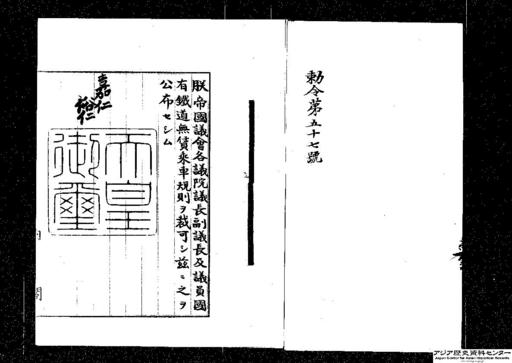 勅令第五十七號
朕帝國議會各議院議長副議長及議員國
有鐵道無賃乘車規則ヲ裁可シ茲ニ之ヲ
公布セシム
嘉仁
裕仁
天皇
御璽
アジア歴史資料センター
Japan Center for Asian Historical Records